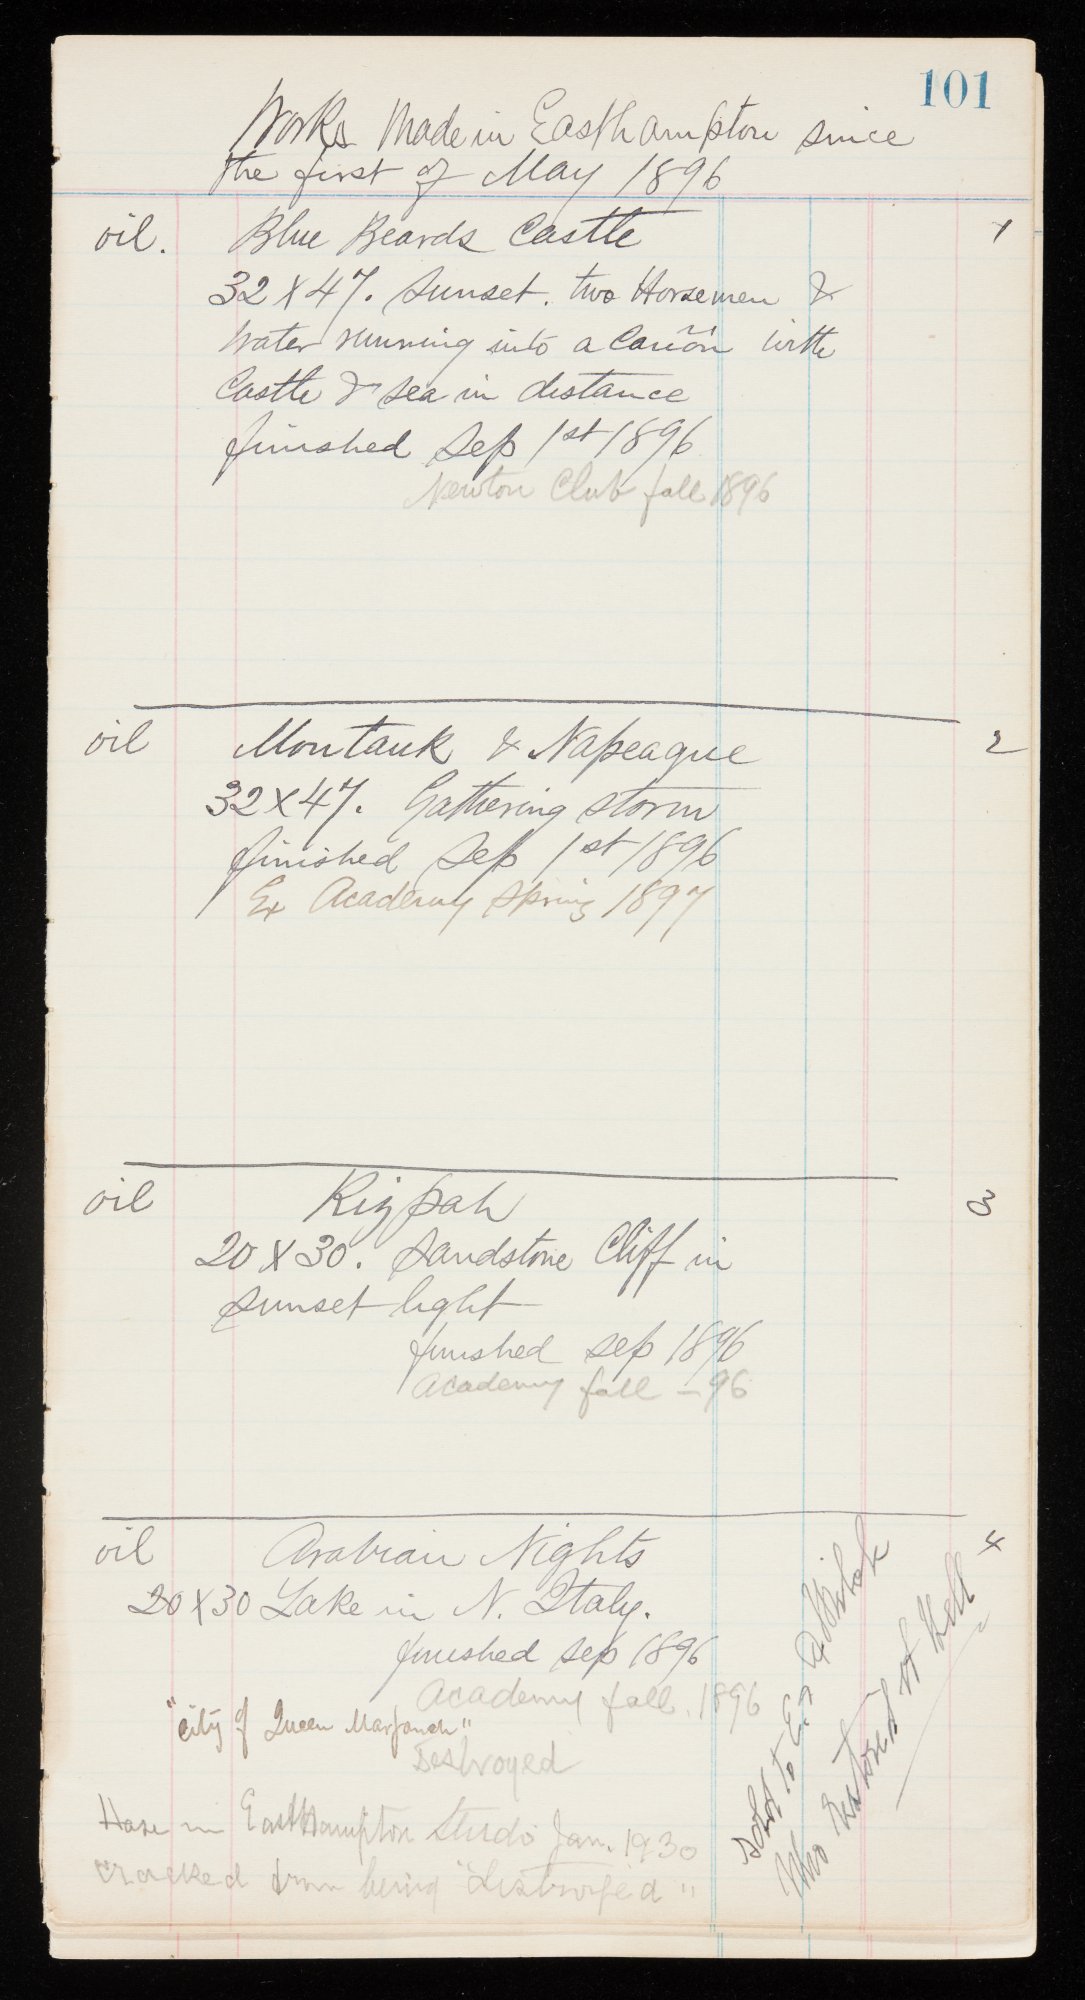 101
Works Made in Easthampton since
the first of May 1896
oil. Blue Beards Castle 1
32 X 47. Sunset. two Horsemen &
Water running into a Cañon with
Castle & sea in distance
finished Sep 1st 1896
Newton Club fall 1896
oil Montauk & Napeague 2
32 X 47. Gathering storm
finished Sep 1st 1896
Ex Academy Spring 1897
oil Rizpah 3
20 X 30. Sandstone Cliff in
sunset light
finished sep 1896
Academy fall - 96
oil Arabian Nights 4
20 X 30 Lake in N. Italy.
finished sep 1896
Academy fall. 1896
"City of Queen
Destroyed
Have in EastHampton Studio Jan. 1930
cracked from being "destroyed"
Sold to E.
Who restored it Well